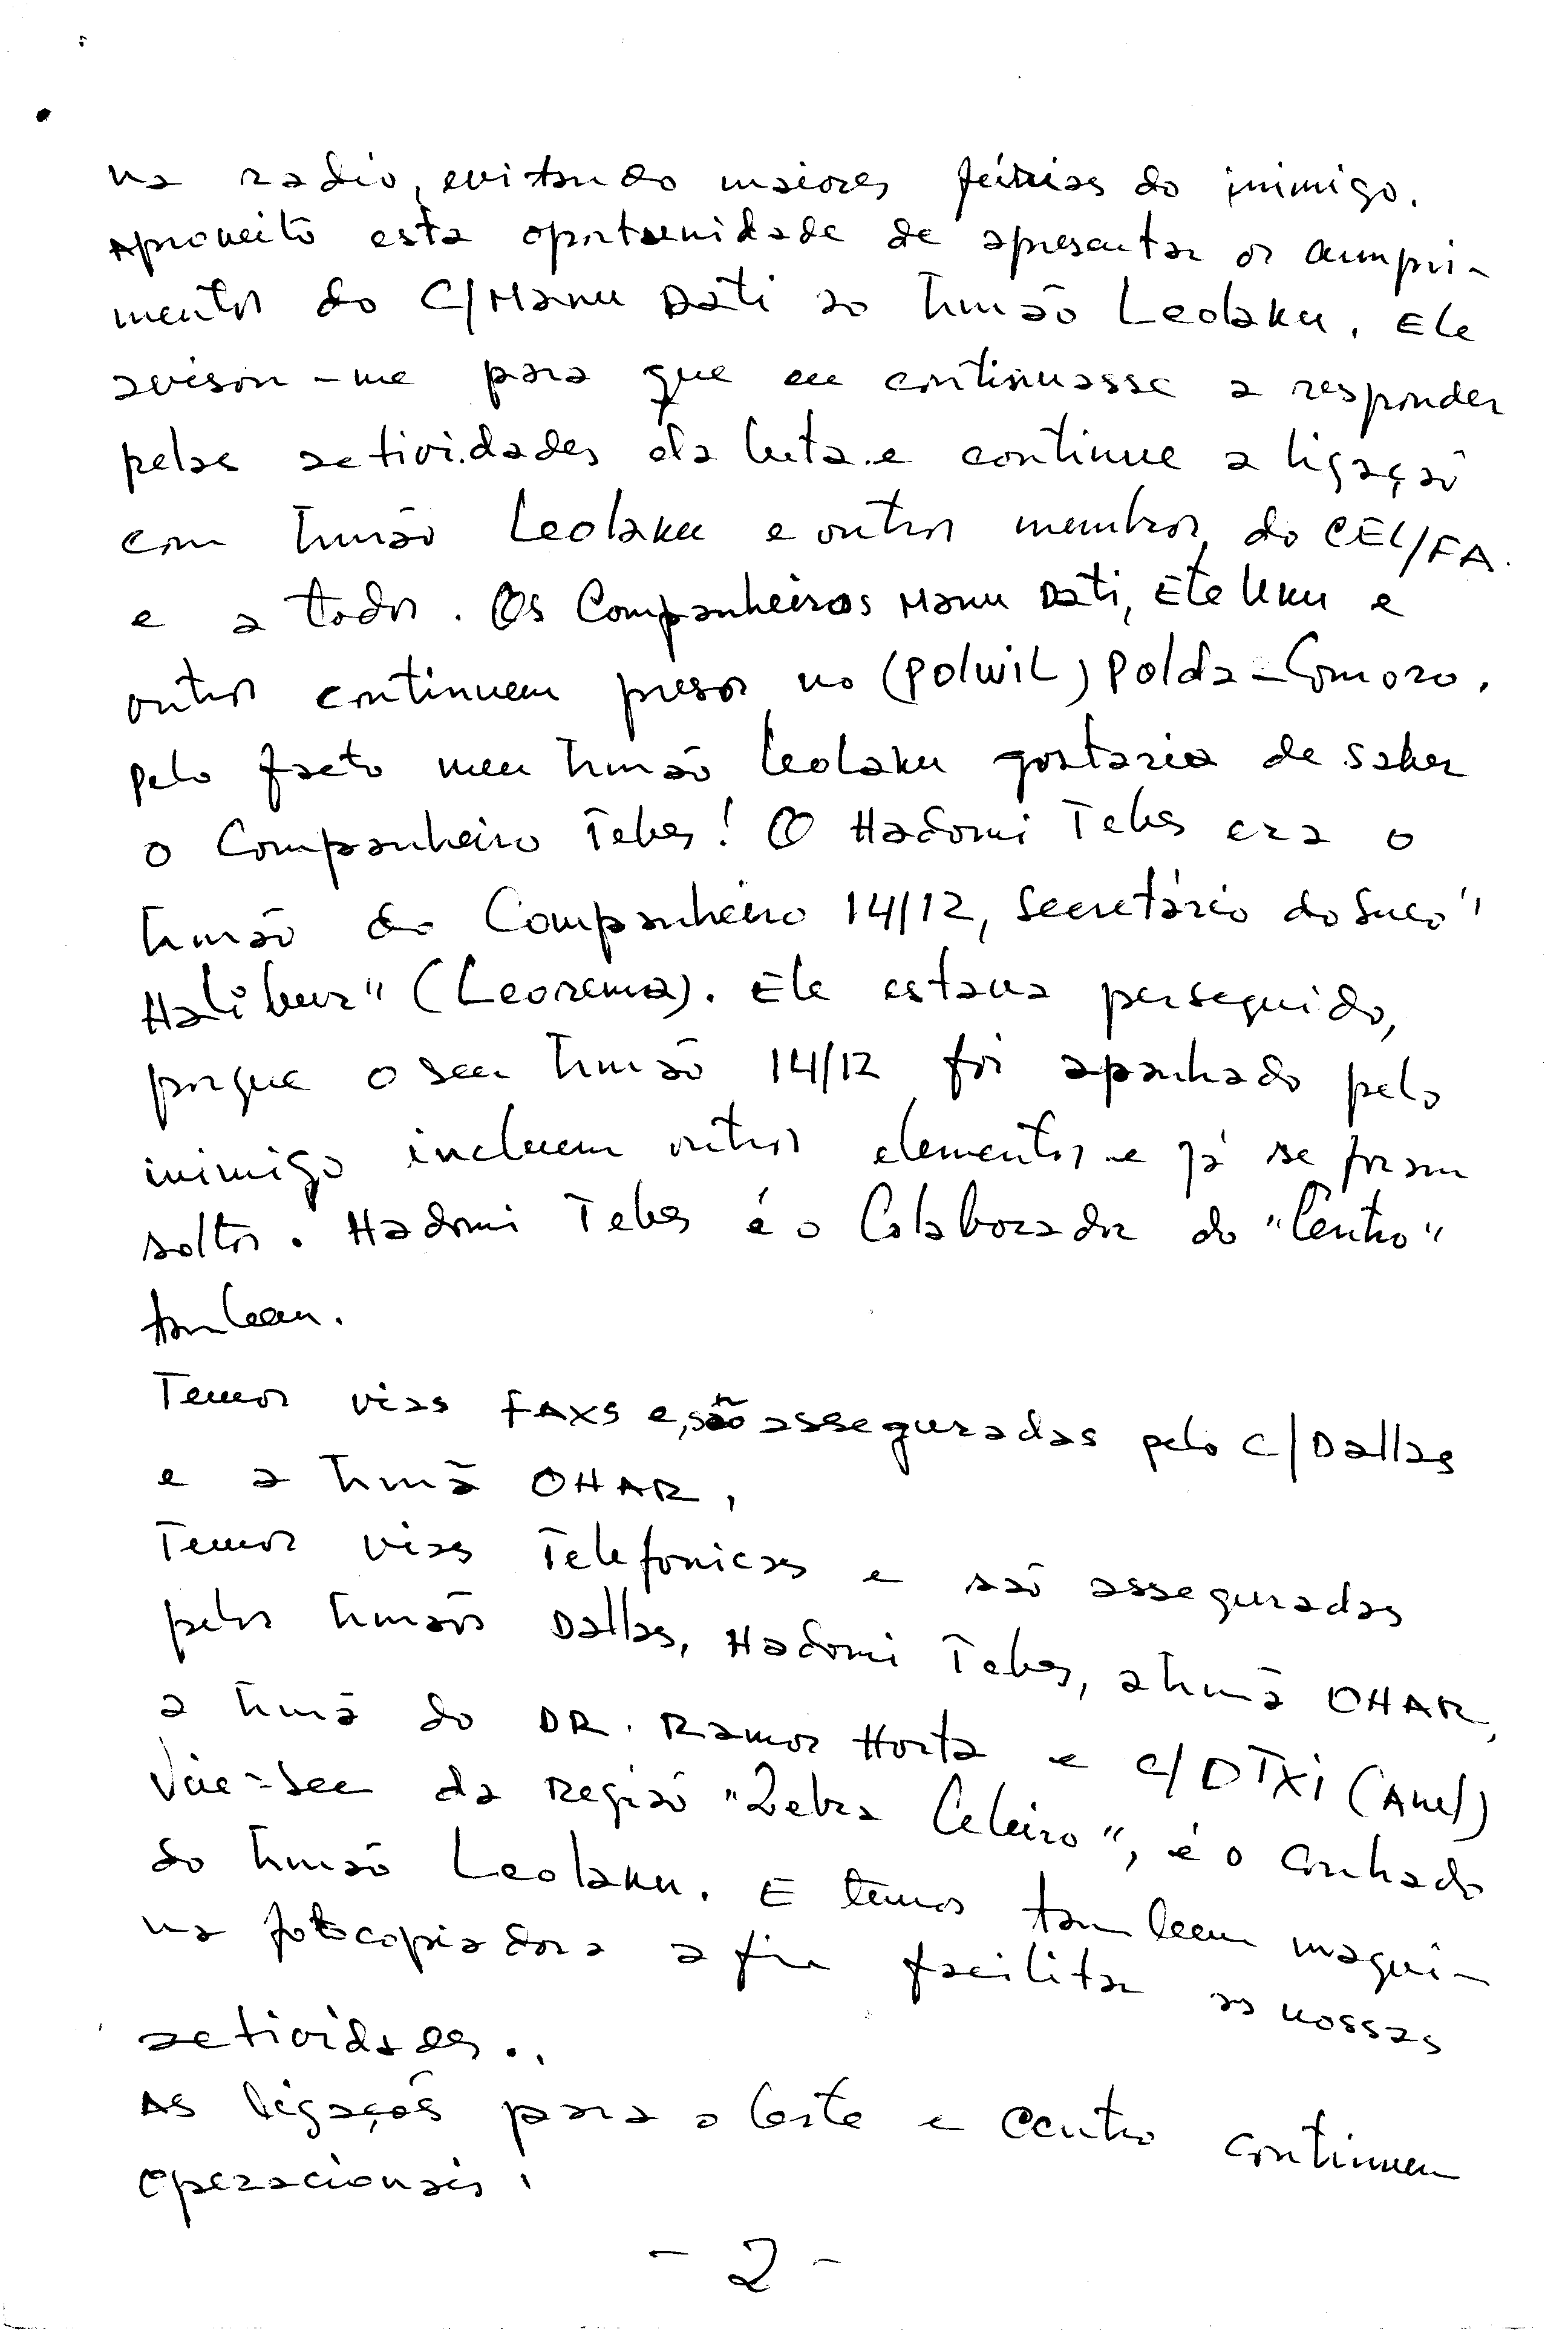 na radio, evitando maiores fúrias do inimigo.
Aproveito esta oportunidade de apresentar os cumpri-
mentos do C/Manu Dati ao Irmão Leolaku. Ele
avisou-me para que eu continuasse a responder
pelas actividades da luta e continue a ligação
com Irmão Leolaku e outros membros do CEL/FA.
e a todos. Os Companheiros Manu Dati, Ete Uku e
outros continuem presos no (POLWIL) Polda-Comoro.
Pelo facto meu Irmão Leolaku gostaria de saber
o Companheiro Tebes! O Hadomi Tebes era o
Irmão do Companheiro 14/12, Secretário do Suco "
Halibur" (Leorema). Ele estava perseguido,
porque o seu Irmão 14/12 foi apanhado pelo
inimigo incluem outros elementos e já se foram
soltos. Hadomi Tebes é o Colaborador do "Centro"
tambem.
Temos vias FAXS e, são asseguradas pelo C/Dallas
e a Irmã OHAR.
Temos vias Telefonicas e são asseguradas
pelos Irmãos Dallas, Hadomi Tebes, a Irmã OHAR,
a Irmã do DR. Ramos Horta e C/DTXi (Anel)
Vae-see da Região "Zebra Celeiro", é o cunhado
do Irmão Leolaku. E temos tambem maqui-
na fotocopiadora a fim facilitar as nossas
actividades..
As ligações para o leste e Centro continuem
operacionais.
- 2 -